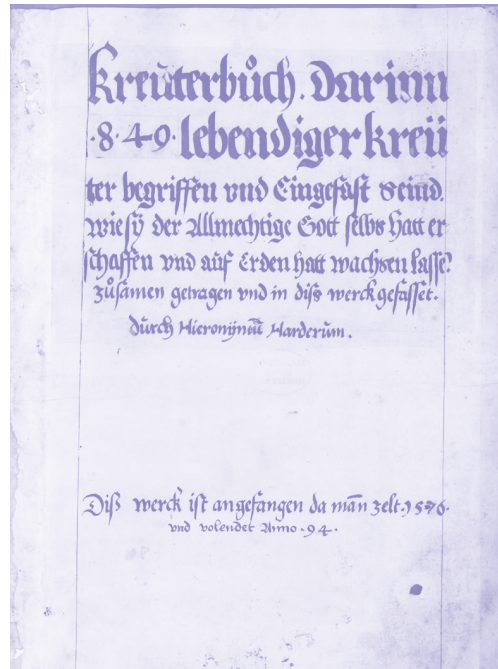 Kreüterbůch. Darinn
·8·49· lebendiger kreü
ter begriffen vnd Eingefast seind.
wie sÿ der Allmechtige Gott selbs Hatt er
schaffen vnd auf Erden hatt wachsen lasse?
zůsamen getragen vnd in diss werck gefasset.
durch Hieronÿmū Harderum.
Diß werck ist angefangen da man zelt·1576·
vnd volendet Anno·94·